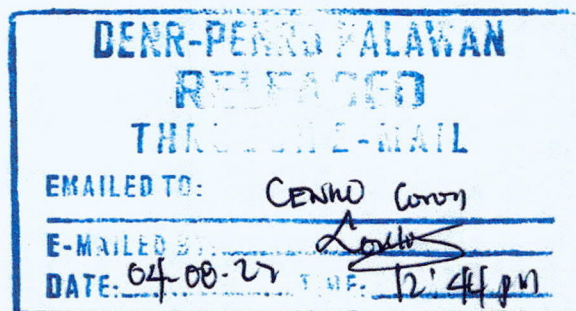 DENR-PENRO PALAWAN
RELEASED
THROUGH E-MAIL
EMAILED TO: CENRO Coron
E-MAILED BY:
DATE: 04-08-22 TIME: 12:44 pm